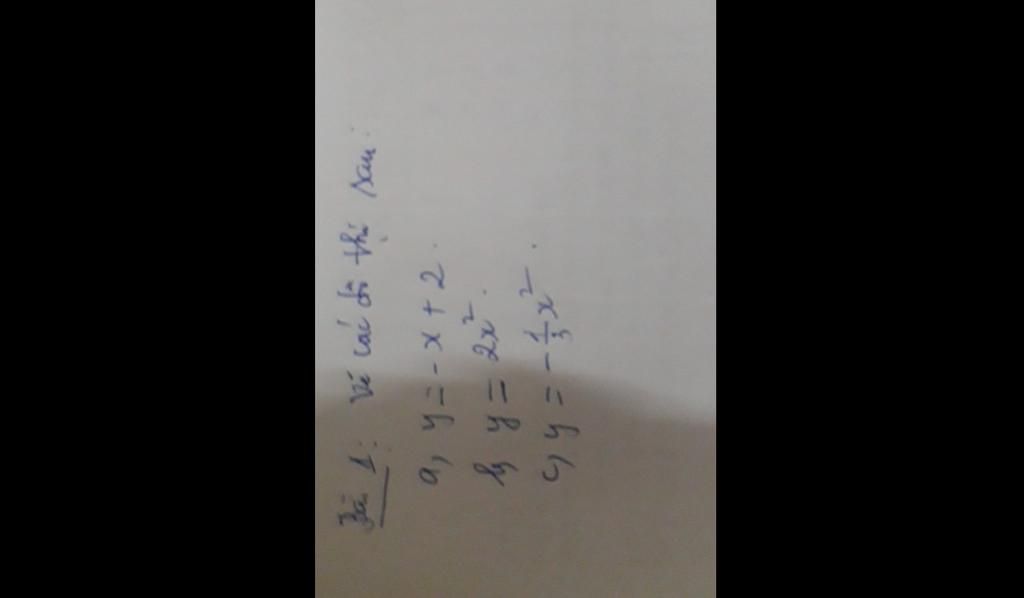 Bài 1: Vẽ các đồ thị sau:
a, y = -x + 2.
b, y = 2x².
c, y = -\frac{1}{3}x².